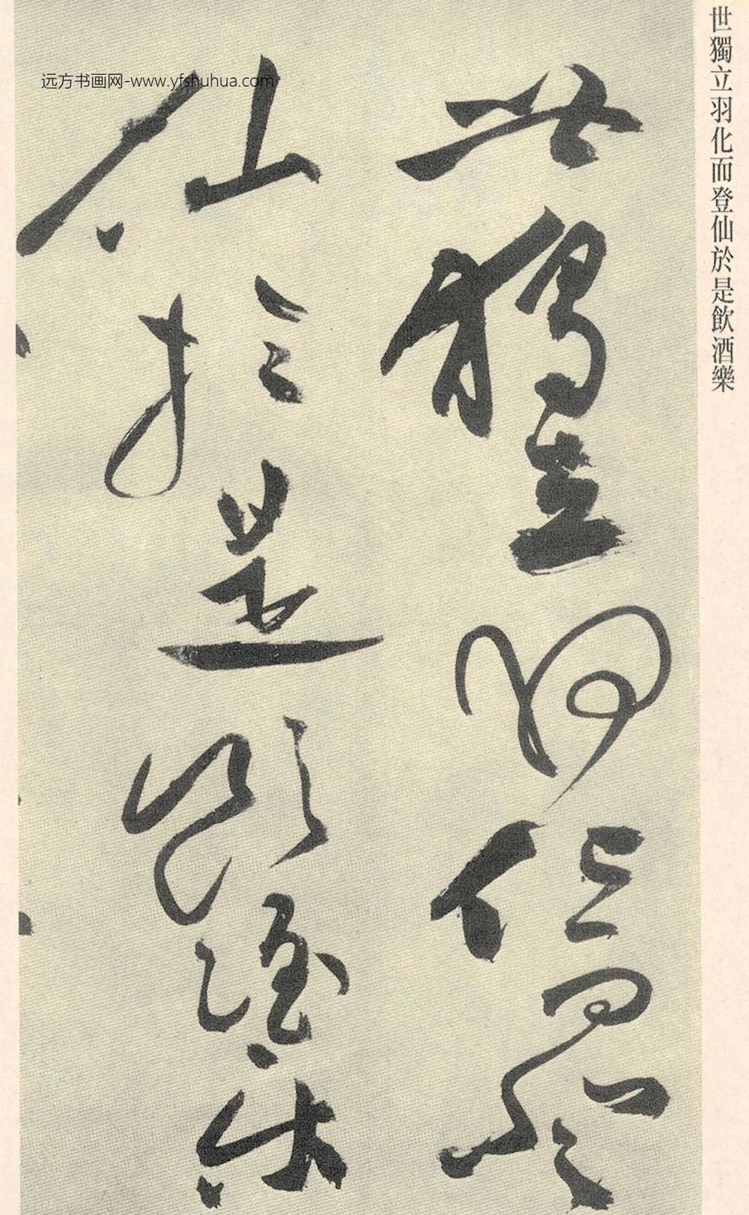 世獨立羽化而登仙於是飲酒樂
世獨立羽化而登
仙於是飲酒樂
远方书画网-www.yfshuhua.com